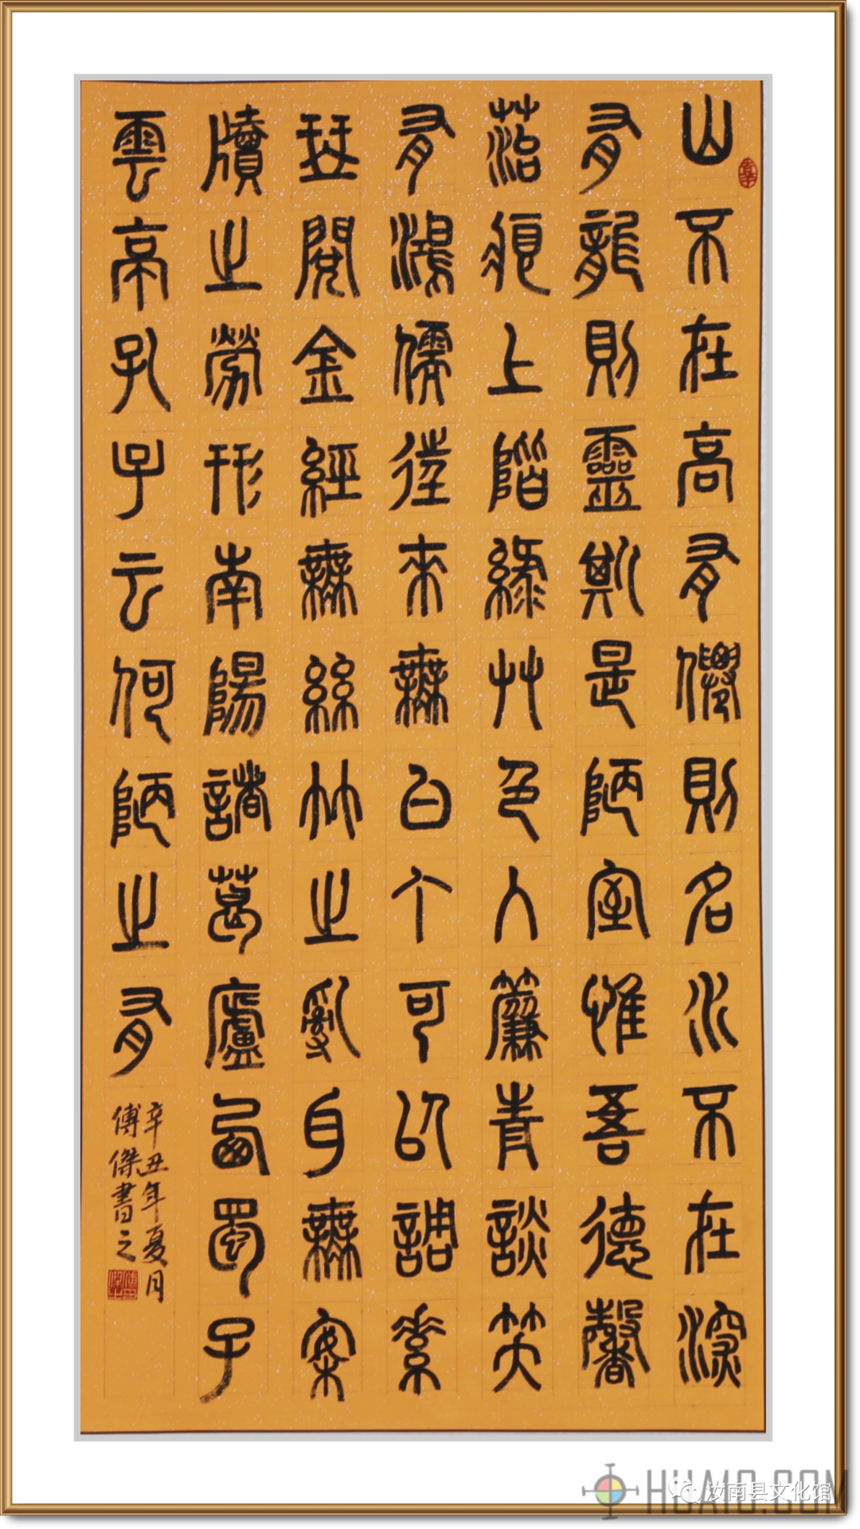 山不在高有僊則名水不在深
有龍則靈斯是陋室惟吾德馨
菭痕上階綠艸色入簾青談笑
有鴻儒往來無白丁可以調素
琴閱金經無絲竹之亂耳無案
牘之勞形南陽諸葛廬西蜀子
雲亭孔子云何陋之有
辛丑年夏月
傅傑書之
汝南县文化馆